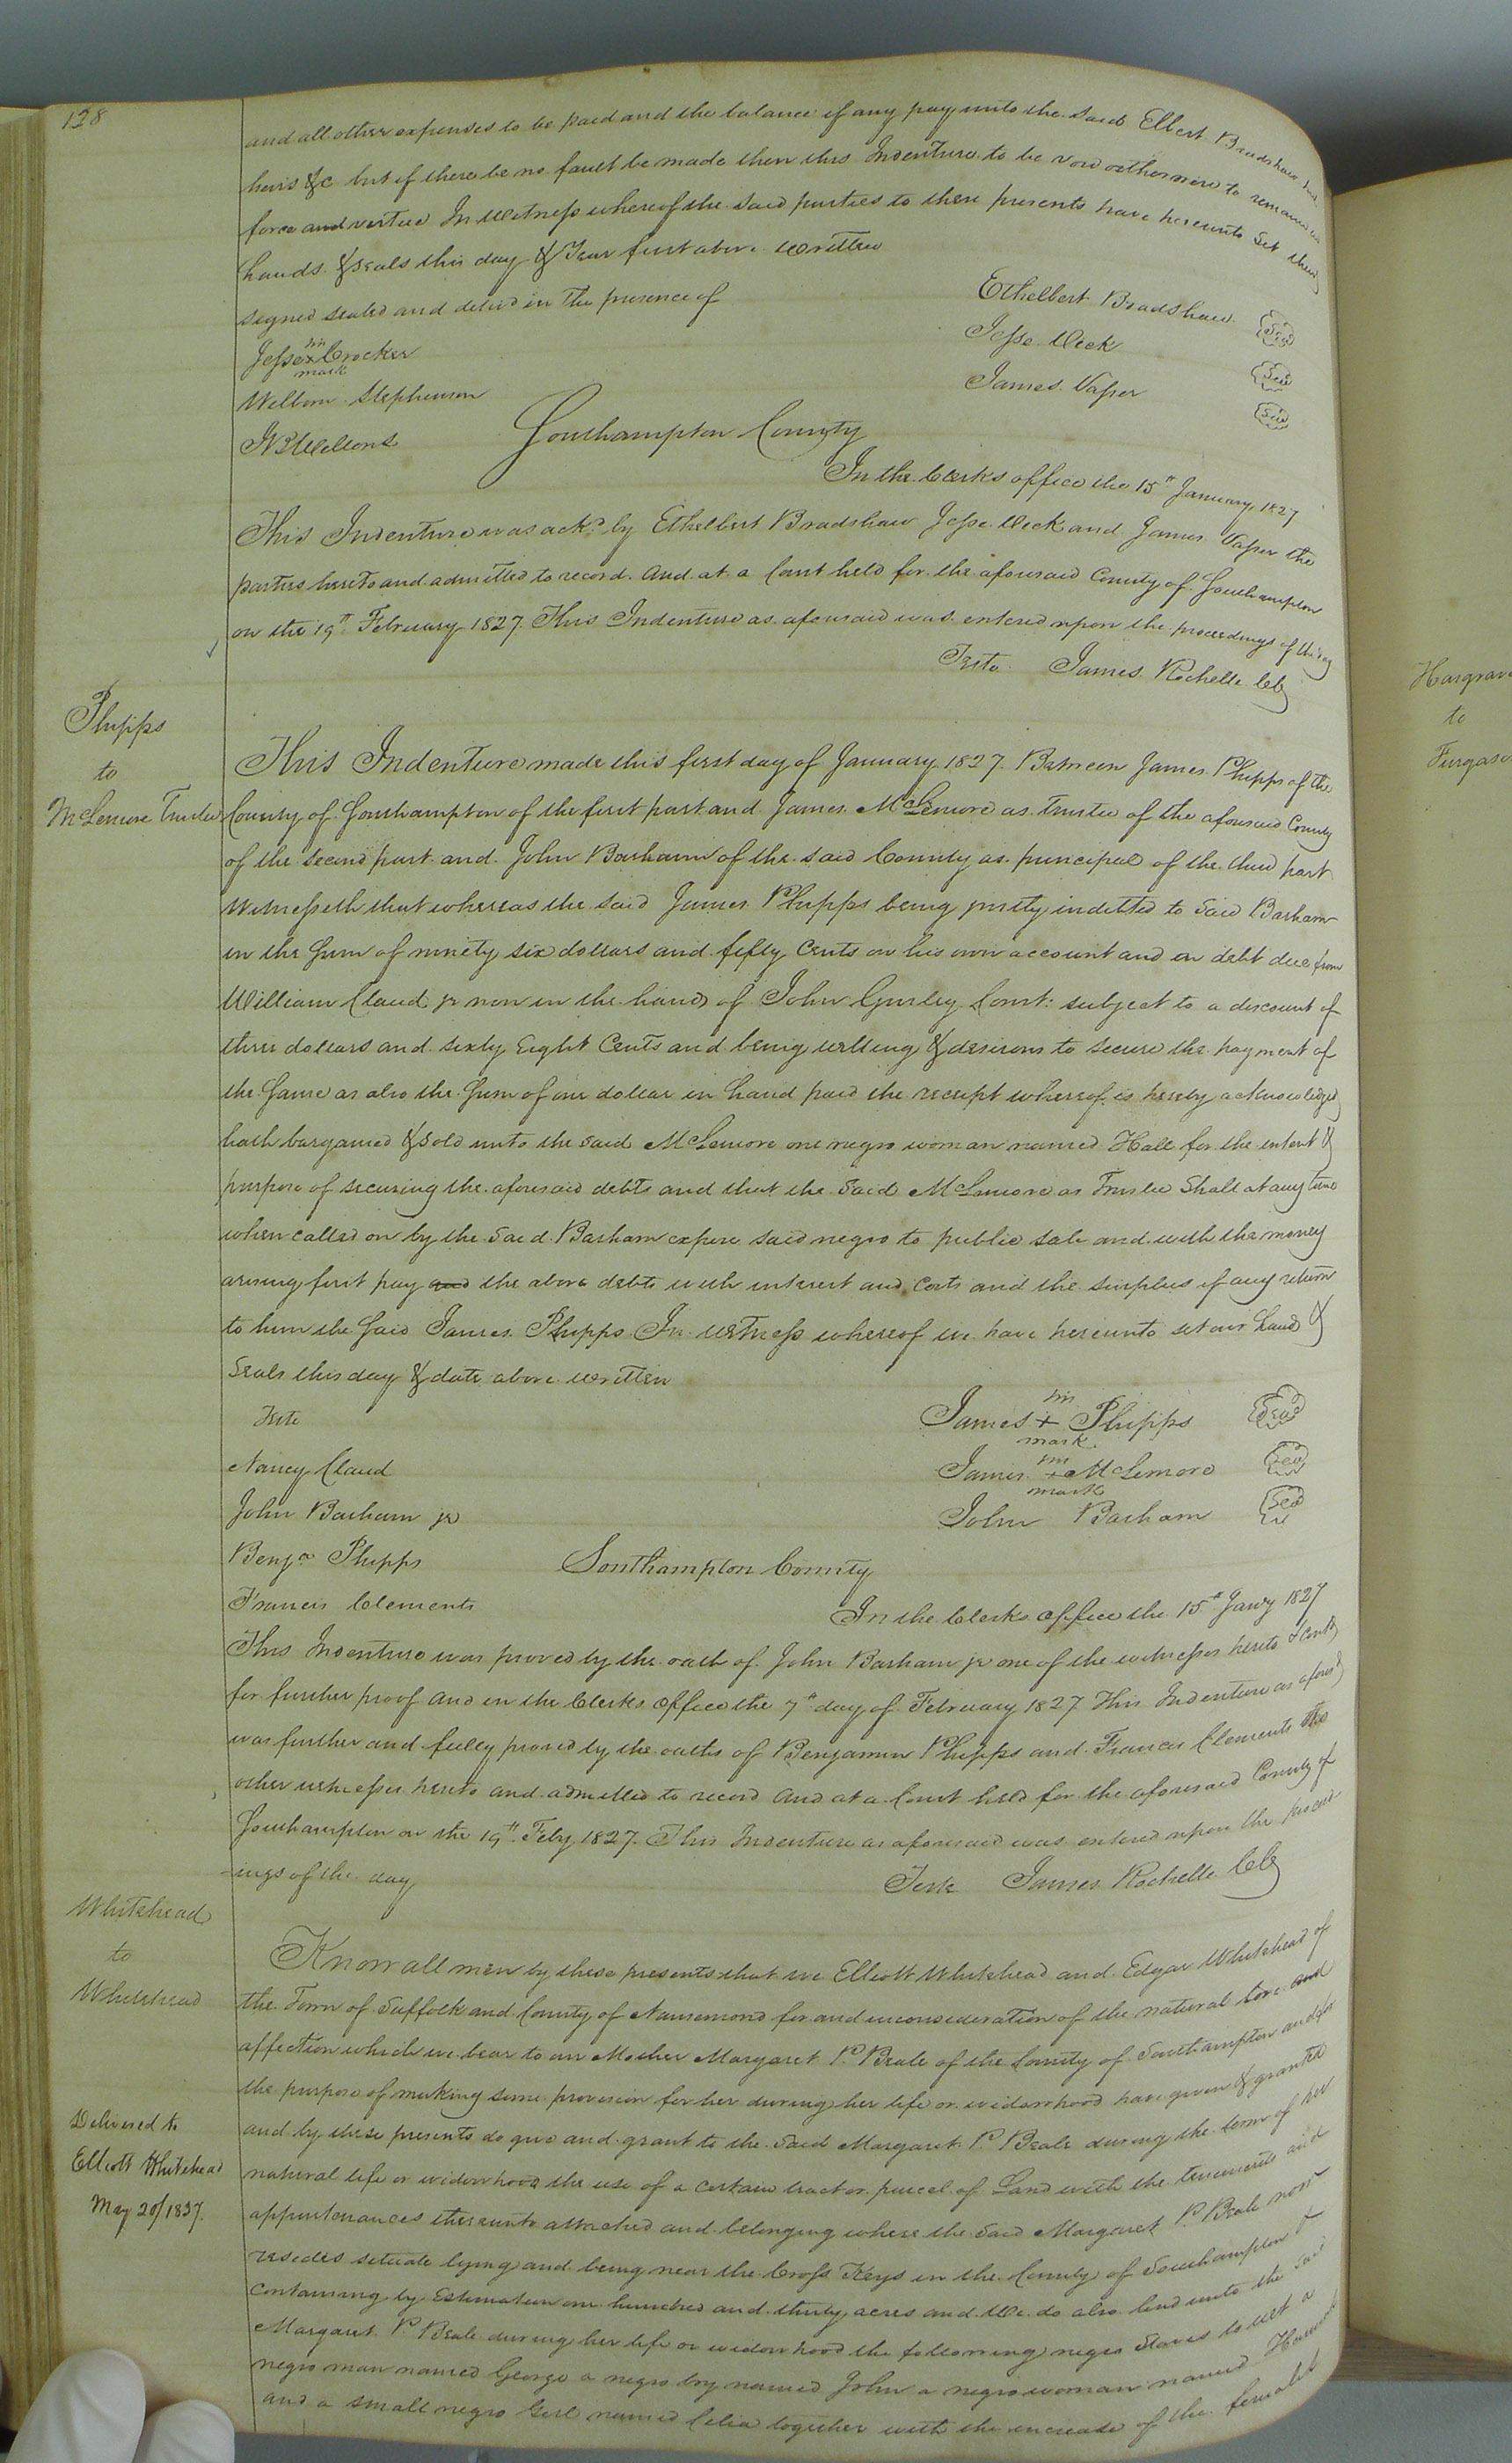 128
and all other expenses to be paid and the balance if any pay unto the said Elbert Bradshaw his
heirs &c but if there be no fault be made then this Indenture to be void otherwise to remain in
force and vertue In Witness whereof the said parties to these presents have hereunto set their
hands & seals this day & Year first above written
signed sealed and delivd in the presence of
Ethelbert Bradshaw Seal
Jesse his x mark Crocker
Jesse Week Seal
Welborn Stephenson
James Vasser Seal
Southampton County
In the Clerks office the 15th January 1827
This Indenture was ackd by Ethelbert Bradshaw Jesse Week and James Vasser the
parties hereto and admitted to record. And at a Court held for the aforesaid County of Southampton
on the 19th February 1827. This Indenture as aforesaid was entered upon the proceedings of this day
Teste. James Rochelle Clk
Phipps
to
McLemore Trustee
This Indenture made this first day of January 1827. Between James Phipps of the
County of Southampton of the first part and James McLemore as trustee of the aforesaid County
of the second part and John Barham of the said County as principal of the third part
Witnesseth that whereas the said James Phipps being justly indebted to said Barham
in the Sum of ninety six dollars and fifty Cents on his own account and on debt due from
William Claud jr now in the hands of John Gurley Const: subject to a discount of
three dollars and sixty Eight Cents and being willing & desirous to secure the payment of
the Same as also the Sum of one dollar in hand paid the receipt whereof is hereby acknowledged
hath bargained & sold unto the said McLemore one negro woman named Hall for the intent &
purpose of securing the aforesaid debts and that the said McLemore as Trustee shall at any time
when called on by the said Barham expose said negro to public sale and with the money
arising first pay and the above debts with interest and costs and the surplus if any return
to him the said James Phipps In witness whereof we have hereunto set our hand &
seals this day & date above written
Teste
James his + mark Phipps Seal
Nancy Claud
James his + mark McLemore Seal
John Barham jr
John Barham Seal
Benja Phipps
Southampton County
Francis Clements
In the Clerks office the 15th Jany 1827
This Indenture was proved by the oath of John Barham jr one of the witnesses hereto & contd
for further proof And in the Clerks office the 7th day of February 1827 This Indenture as aforesd
was further and fully proved by the oaths of Benjamin Phipps and Francis Clements the
other witnesses hereto and admitted to record And at a Court held for the aforesaid County of
Southampton on the 19th Feby 1827. This Indenture as aforesaid was entered upon the proceed
ings of the day
Teste James Rochelle Clk
Whitehead
to
Whitehead
Know all men by these presents that we Elliott Whitehead and Edgar Whitehead of
the Town of Suffolk and County of Nansemond for and in consideration of the natural love and
affection which we bear to our Mother Margaret P. Beale of the County of Southampton and for
the purpose of making some provision for her during her life or widowhood have given & granted
and by these presents do give and grant to the said Margaret P. Beale during the term of her
natural life or widowhood the use of a certain tract or parcel of Land with the tenements and
appurtenances thereunto attached and belonging where the said Margaret P. Beale now
resides situate lying and being near the Cross Keys in the County of Southampton &
containing by Estimation one hundred and thirty acres and We do also lend unto the said
Margaret P Beale during her life or widowhood the following negro Slaves to wit a
negro man named George a negro boy named John a negro woman named
and a small negro Girl named Celia together with the increase of the females
Delivered to
Elliott Whitehead
May 20/1837.
Hargrave
to
Furgason